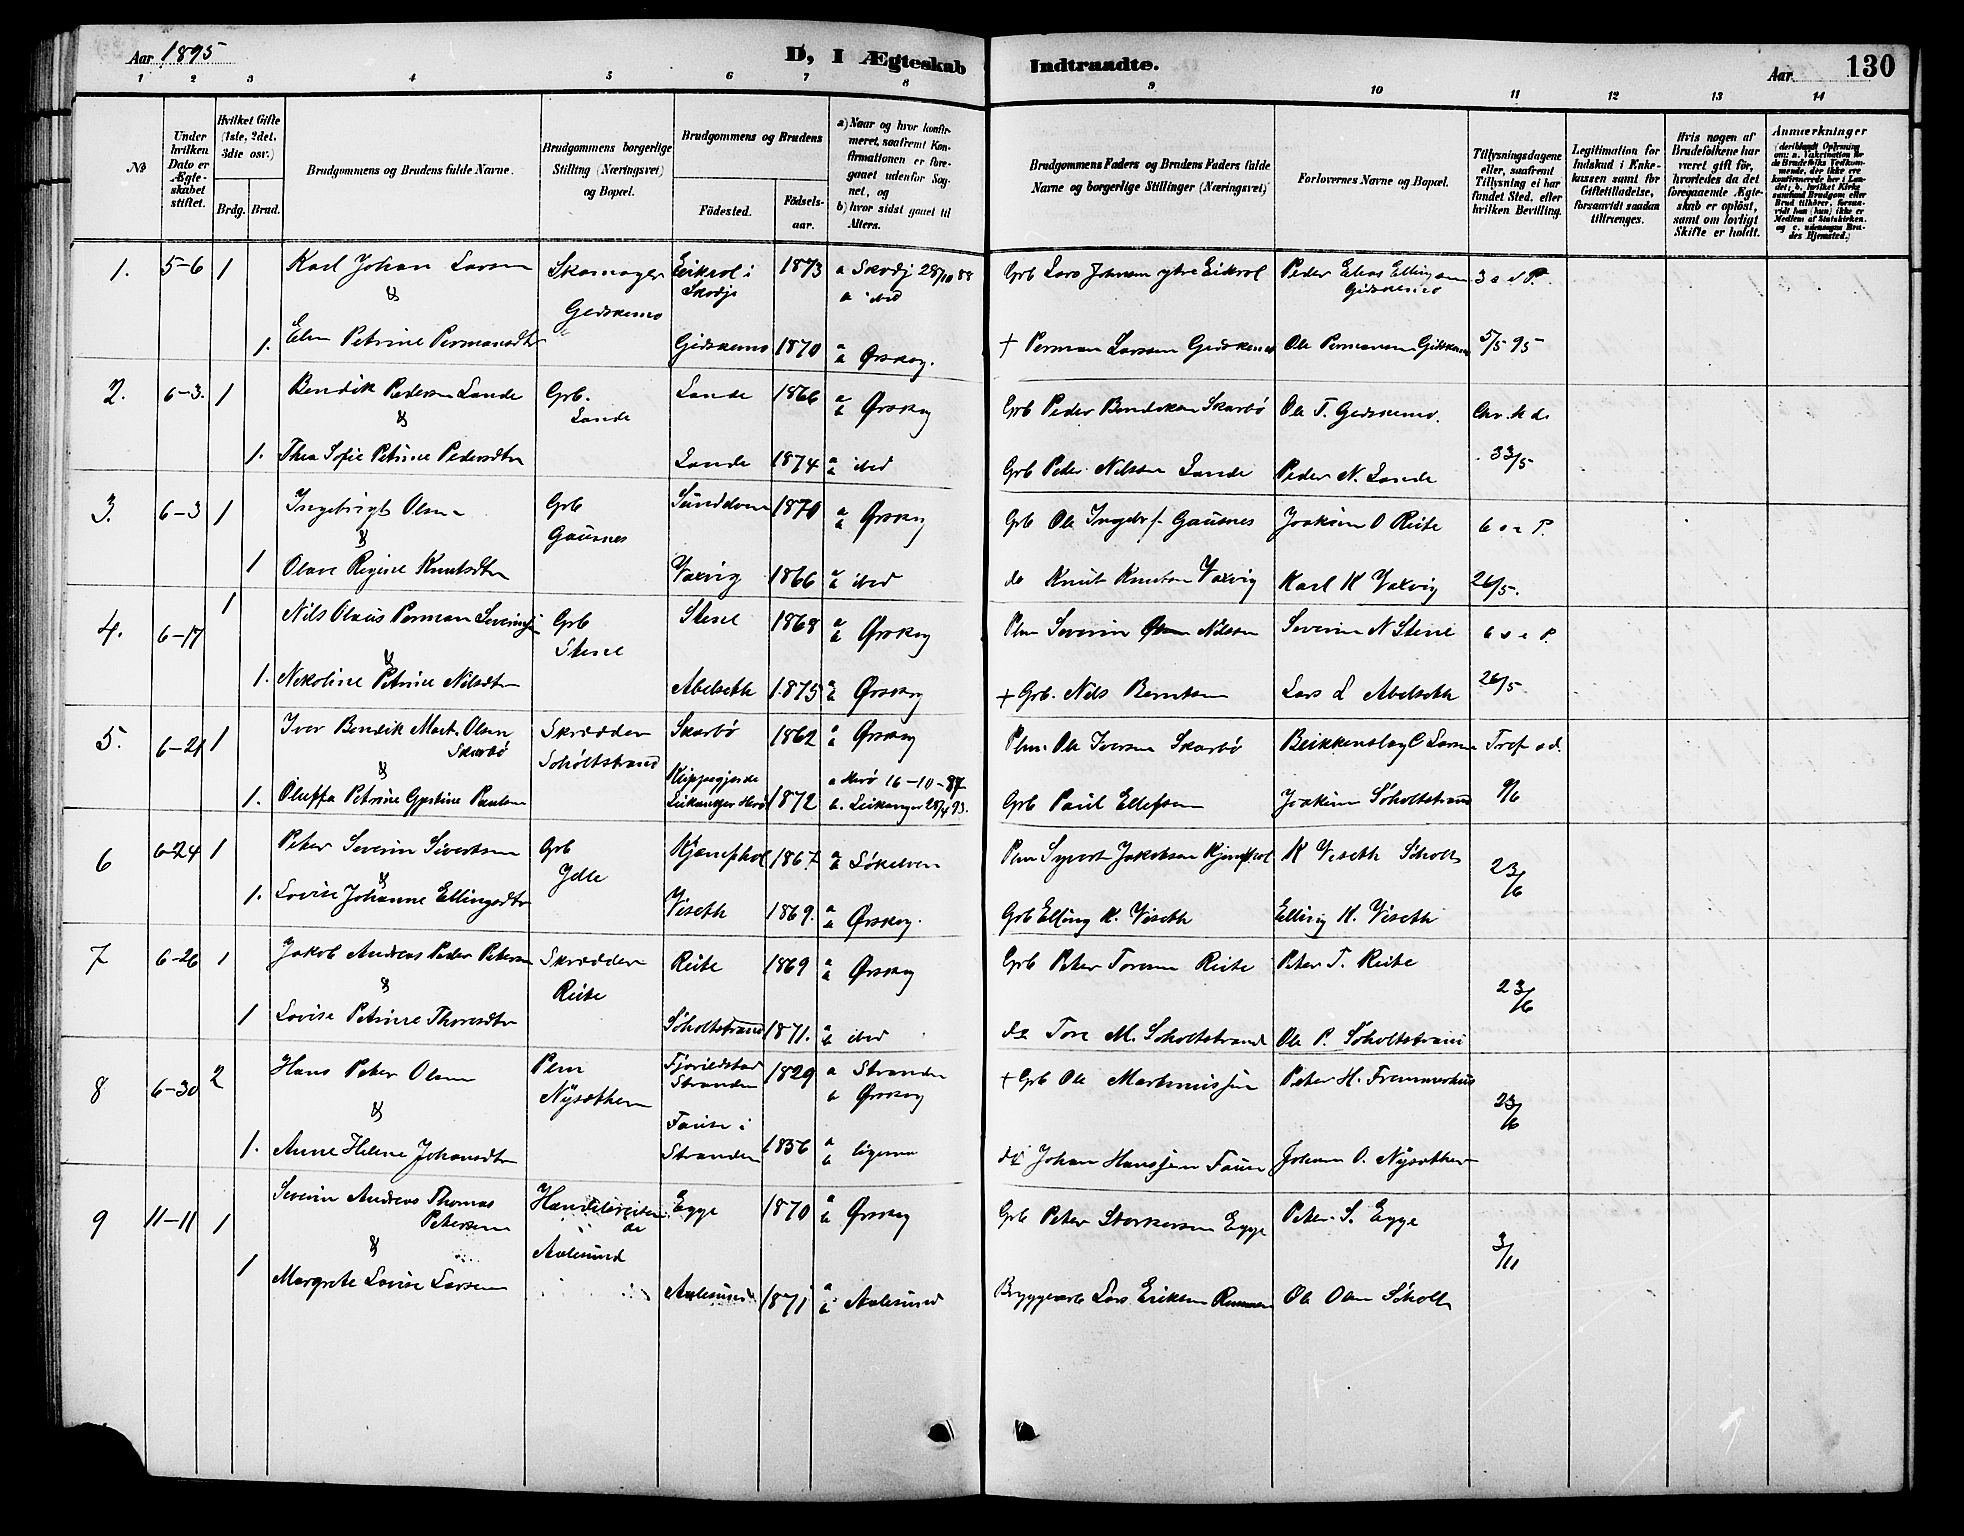 Aar 1895
D, I Ægteskab Indtraadte.
Aar 130
1 2 3 4 5 6 7 8 9 10 11 12 13 14
No
Under hvilken Dato er Ægteskabet stiftet.
Hvilket Gifte (1ste, 2det, 3die osv.)
Brdg. Brud.
Brudgommens og Brudens fulde Navne.
Brudgommens borgerlige Stilling (Næringsvei) og Bopæl.
Brudgommens og Brudens
Fødested. Fødselsaar.
a) Naar og hvor konfirmeret, saafremt Konfirmationen er foregaaet udenfor Sognet, og
b) hvor sidst gaaet til Alters.
Brudgommens Faders og Brudens Faders fulde Navne og borgerlige Stillinger (Næringsvei)
Forlovernes Navne og Bopæl.
Tillysningsdagene eller, saafremt Tillysning ei har fundet Sted, efter hvilken Bevilling.
Legitimation for Indskud i Enkekassen samt for Giftetilladelse, forsaavidt saadan tiltrænges.
Hvis nogen af Brudefolkene har været gift før, hvorledes da det foregaaende Ægteskab er opløst, samt om lovligt Skifte er holdt.
Anmærkninger
1. 5-6 1 Karl Johan Larsen Skomager Eikrol i Skodje 1873 a Skodj 28/10 88 Grb Lars Johnsen ytre Eikrol Peder Elias Ellingsen Gidskemo 3 s e P.
& Gidskemo b ibid
1. Elen Petrine Permansdtr Gidskemo 1870 a b Ørskog. + Perman Larssen Gidskemo Ole Permansen Gidskemo 5/5 95
2. 6-3. 1 Bendik Pedersen Lande Grb. Lande Lande 1866 a b Ørskog Grb Peder Bendiksen Skarbø Ole T. Gidskemo. Chr. h d.
&
1. Thea Sofie Petrine Pedersdtr Lande 1874 a b ibid Grb Peder Nilssen Lande Peder N. Lande 23/5
3. 6-3 1 Ingebrigt Olsen Grb Gausnes 1870 a b Ørskog Grb Ole Gausnes Joakim O Reite 6 s e P.
&
1 Olave Regine Knutsdtr Vaxvig 1866 a b ibid do Knut Knutsen Vaxvig Karl K Vaxvig 26/5.
4. 6-17 1 Nils Olaus Perman Severinsen Grb Stene Stene 1868 a b Ørskog Plm Severin Nilssen Severin N Stene 6 s e P.
&
1. Nikoline Petrine Nilsdtr Abelseth 1875 a b Ørskog + Grb. Nils Berntsen Lars L Abelseth 26/5
5. 6-21 1 Iver Bendik Mart. Olsen Skarbø Skrædder Søholtstrand Skarbø 1862 a b Ørskog Plm. Ole Iversen Skarbø Larsen Tref s d.
&
1. Oluffa Petrine Paulsen Leikanger Herø 1872 a Herø 16-10-87 b. Leikanger 28/4 95. Grb Paul Ellefsen Joakim Søholtstrand 9/6
6 6-24 1 Peter Severin Sivertsen Grb 1867. a b Søkelven Plm Syvert Jakobsen K Viseth Søholt 23/6
&
1. Lovise Johanne Ellingsdtr Viseth 1869. a b Ørskog. Grb Elling K. Viseth Elling K. Viseth
7 6-26 1 Jakob Andreas Peder Petersen Skrædder Reite Reite 1869 a b Ørskog Grb Peter Toresen Reite Peter T. Reite 23/6
&
1 Lovise Petrine Thoresdtr Søholtstrand 1871. a b ibid do Tore M. Søholtstrand Ole P. Søholtstrand
8 6-30 2 Hans Peter Olsen Plm Nysæther Stranden 1829 a Stranden b Ørskog + Grb Ole Martinussen Peter H. Frammerhus 23/6
&
1. Anne Helene Johansdtr Fause i Stranden 1856 a b ligesaa do Johan Hanssen Fause Johan O. Nysæther
9 11-11 1 Severin Andreas Thomas Petersen Handelsreisende Aalesund Egge 1870 a b Ørskog Grb Peter Storkersen Egge Peter S. Egge 3/11
&
1 Margrete Lovise Larsen Aalesund 1871 a b Aalesund Bryggearb Lars Eriksen Remmen Ole Olsen Søholt